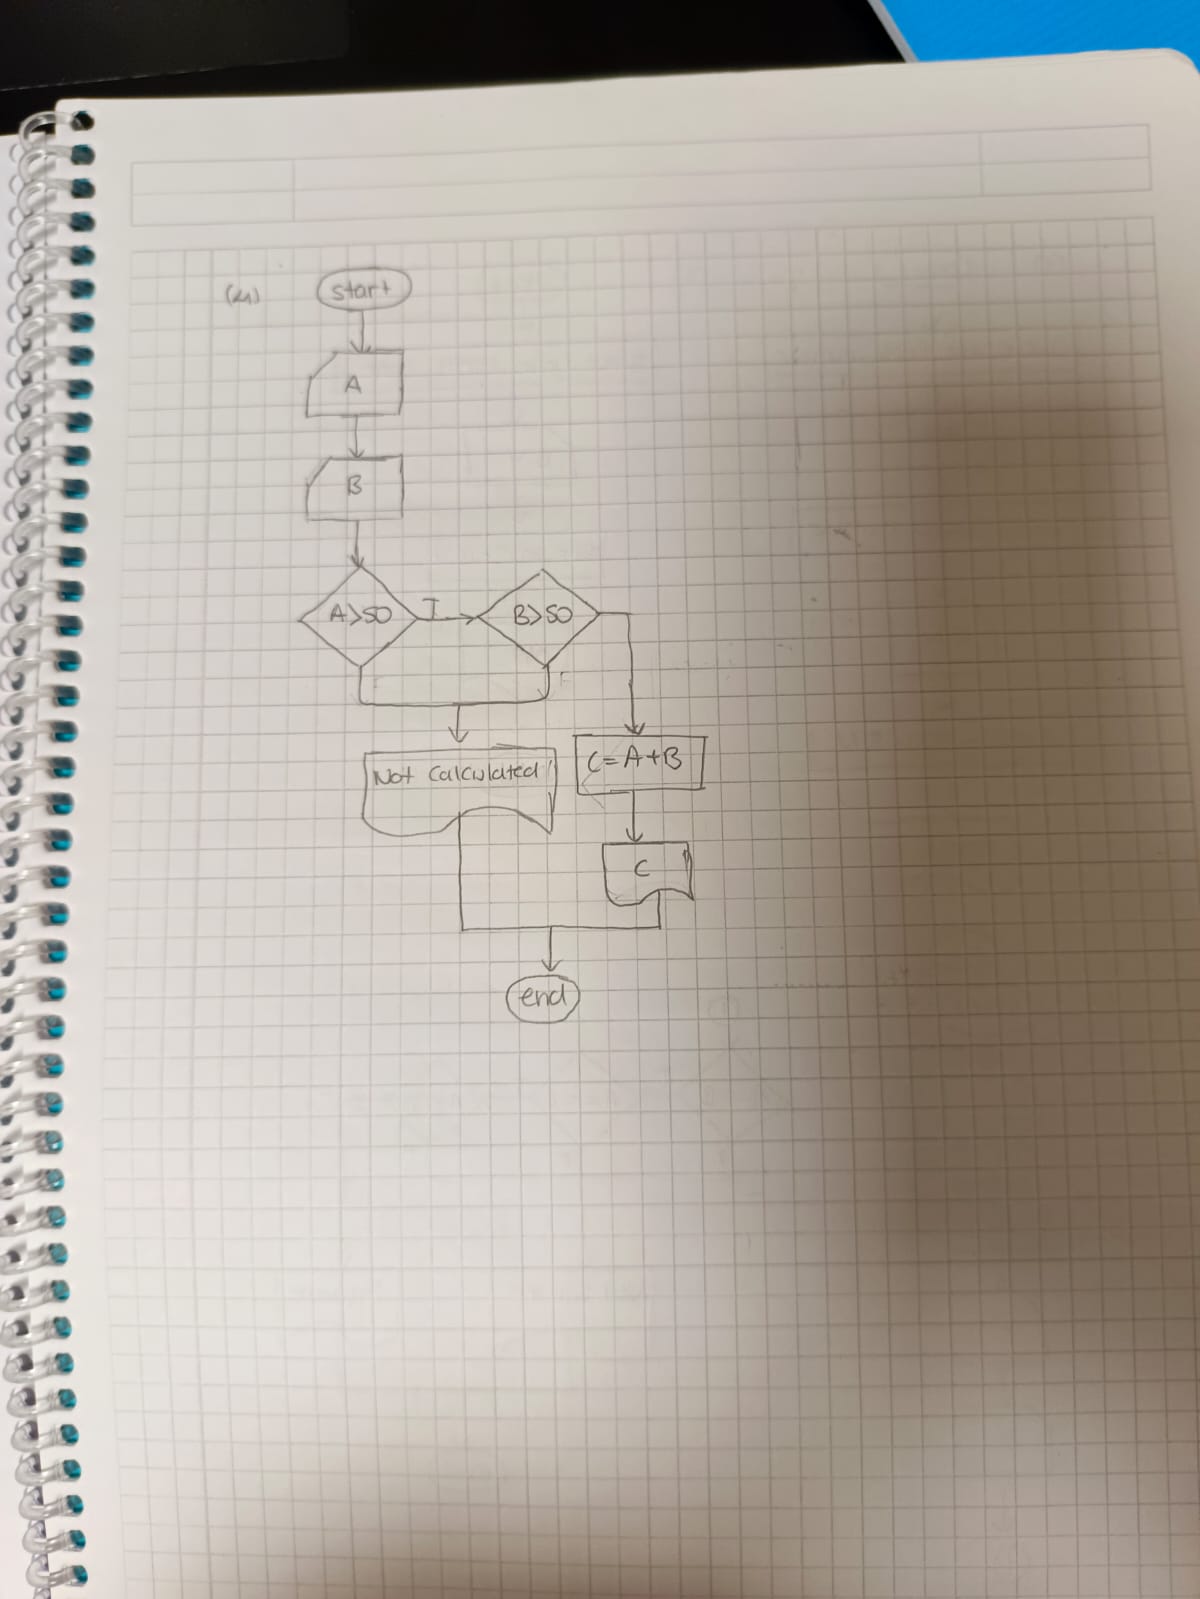 start
A
B
A>50
T
B>50
F
Not Calculated
C=A+B
C
end